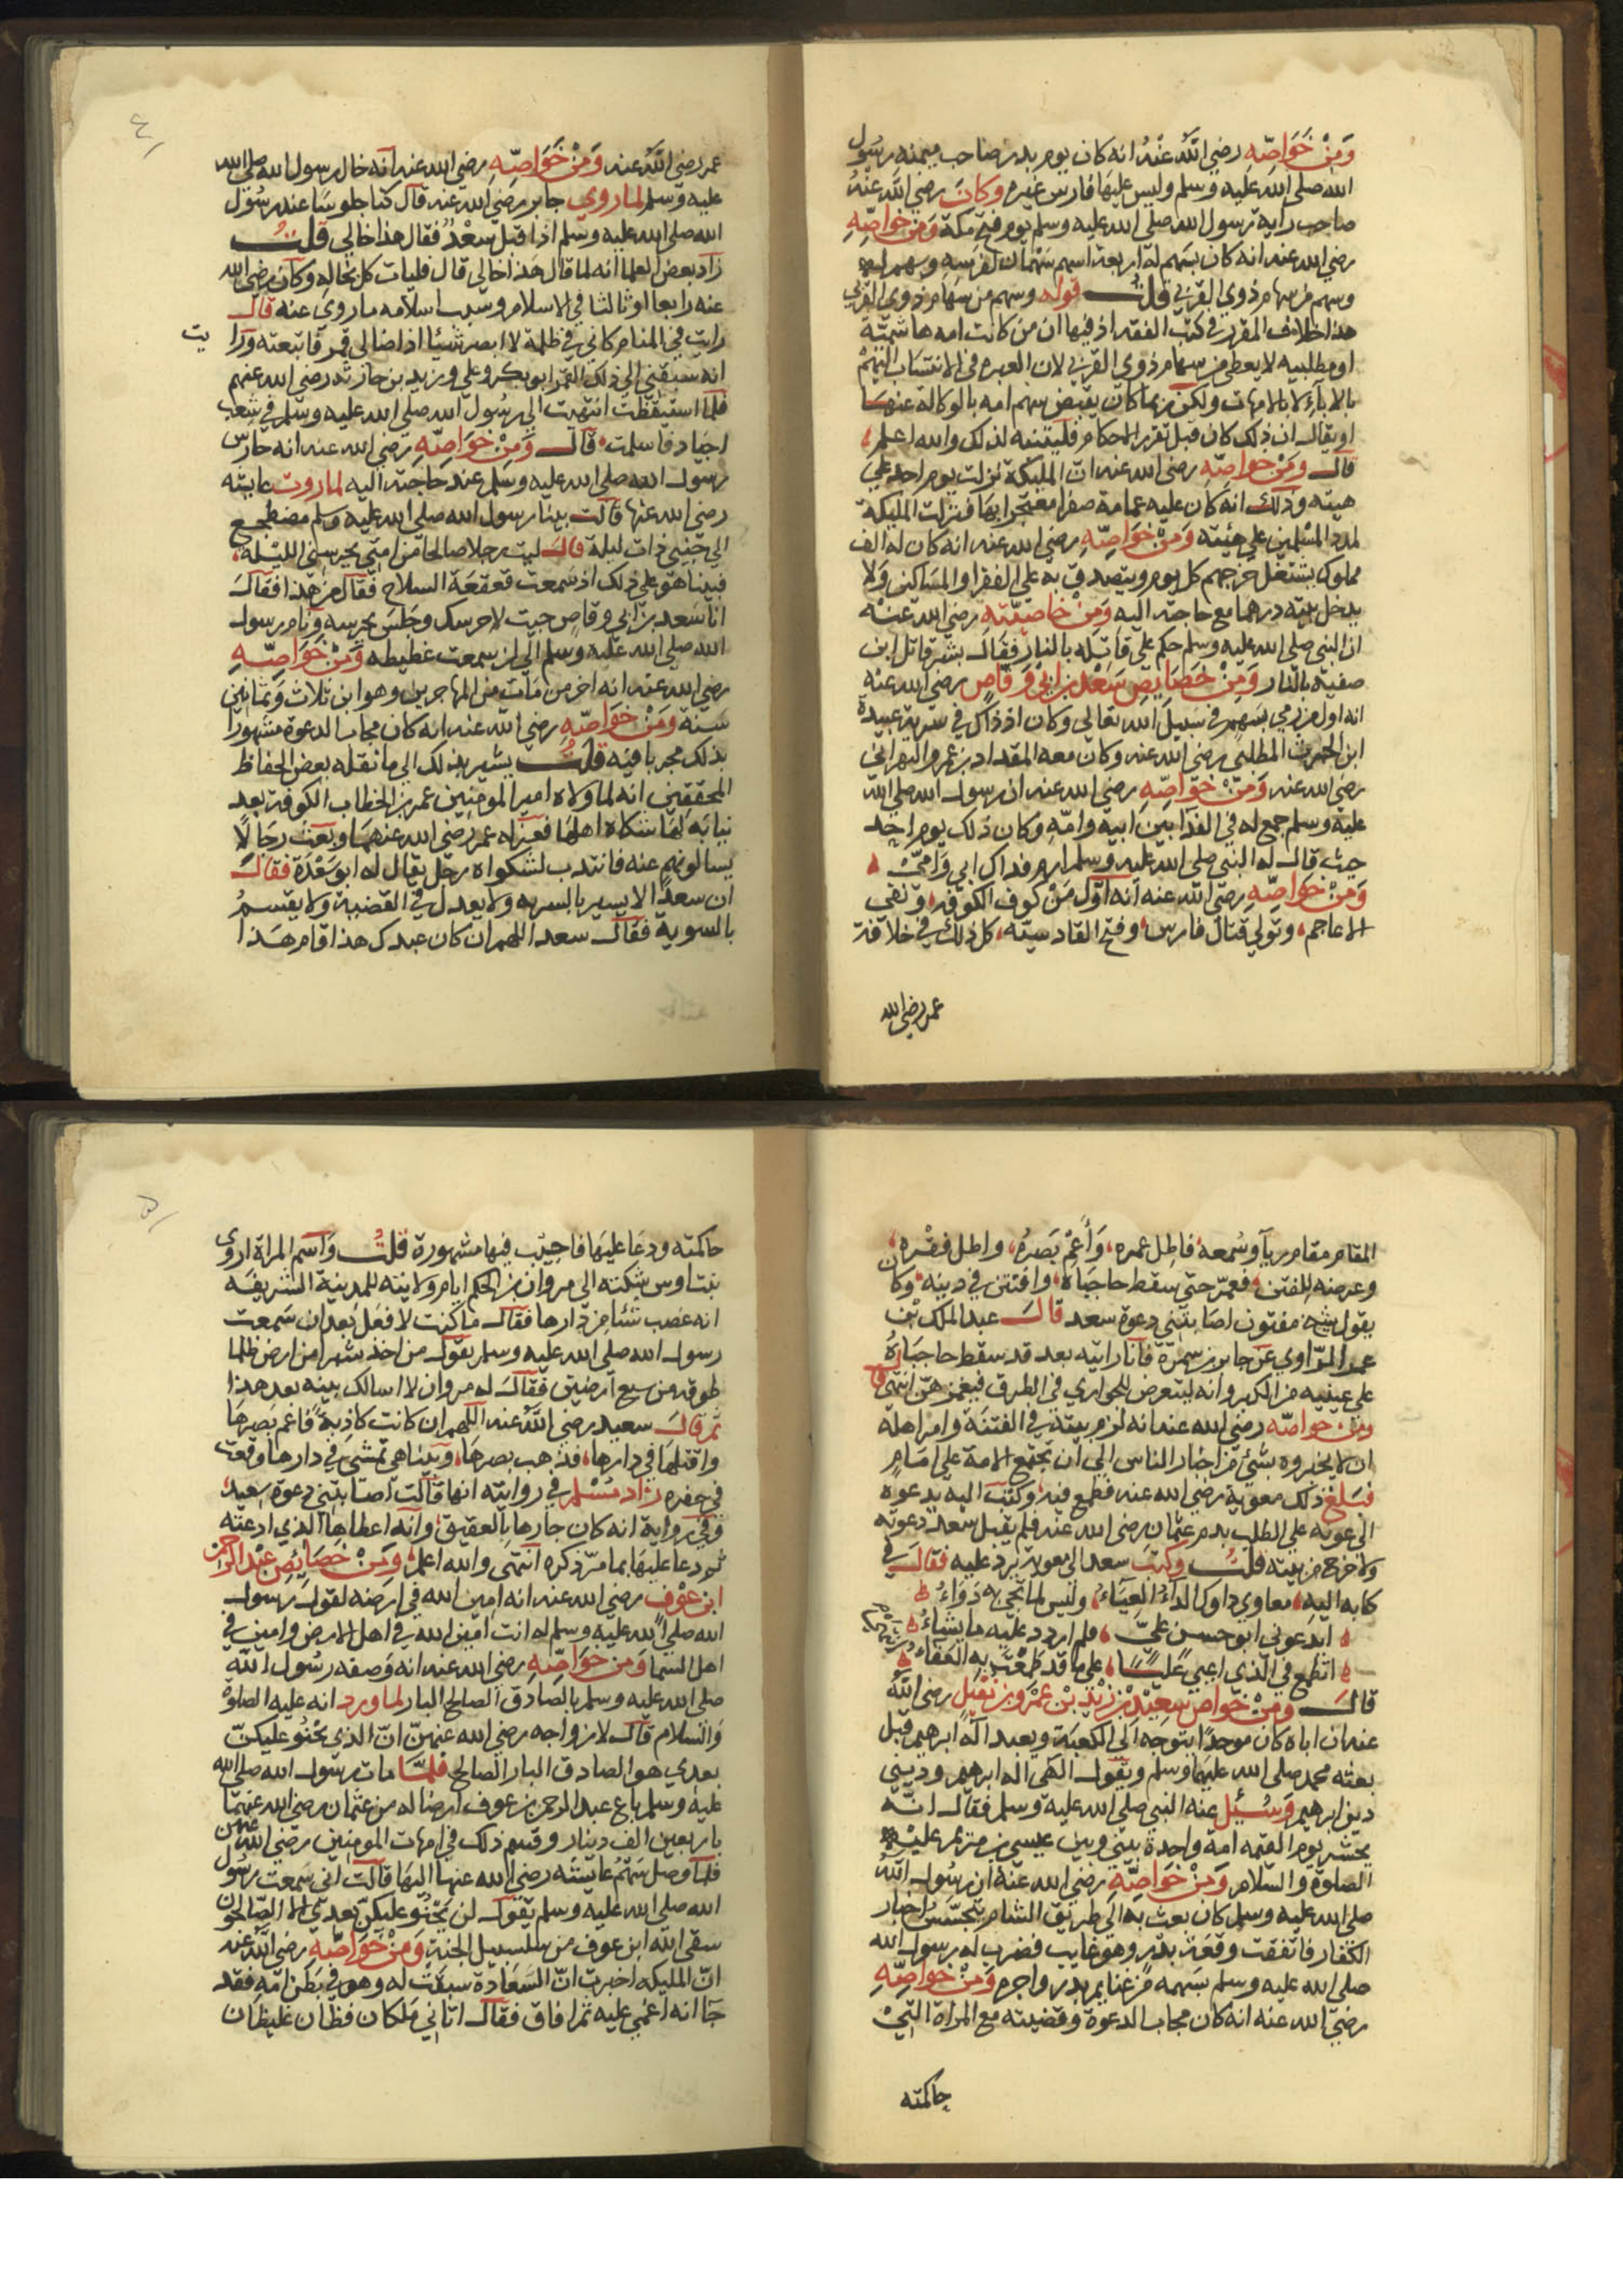 وَمِنْ خَوَاصِّهِ رضي اللَّه عَنْهُ انه كان يوم بدر صاحب ميمنه رسُول
الله صلى الله عَليه وَسلم وليس عليهَا فارس غيره وكانَ رضي الله عَنهُ
صاحب راية رسول الله صلى الله عليه وسلم يوم فتح مكة وَمن خواصِّهِ
رضي الله عنه انه كان يسهم له اربعة اسهم سَهمَان لفرسِهِ وسهم له
وسهم من سهام ذوي القربي قلت قوله وسهم من سهام ذوي القربي
هذا خلاف المقرر في كتب الفقه اذ فيها ان من كانت امه هاشميّة
او مطلبيه لا يعطى من سهام ذوي القربي لان العبره في الانتساب اليهم
بالابآء لا بالامهات ولكن ربما كان يقبض سهم امه بالوكاله عنهَا
او يقال ان ذلك كان قبل تقرير الاحكام فليتنبه لذلك والله اعلم
قال وَمِنْ خواصّهِ رضي الله عنه ان المليكة نزلت يوم احد علي
هيئته وذلك انه كان عليه عمامة صفرا معتجرا بها فنزلت المليكة
لمدد المسْلمين علي هيئته وَمِنْ خَوَاصِّهِ رضي الله عنه انه كان له الف
مملوك يشتغل خرجهم كل يوم ويتصدق به علي الفقرا والمسَاكين وَلا
يدخل بيته درهما مع حاجته اليه وَمِنْ خاصيّتهِ رضي الله عنه
ان النبي صلى الله عليه وسلم حكم على قاتله بالنار فقال بشر قاتل ابن
صفيه بالنار وَمِنْ خصَايصِ سَعْد بن ابي وَقّاصٍ رضي الله عنه
انه اول من رمي بسَهمٍ في سبيل الله تعالي وكان اذ ذاك في سرية عبيدة
ابن الحرث المطلبي رضي الله عنه وكان معه المقداد بن عمرو البهراني
رضي الله عنه وَمِنْ خوَاصِّهِ رضي الله عنه ان رسول الله صلى الله
عليه وسلم جمع له في الفدا بين ابيه وامّهِ وكان ذلك يوم احد
حيث قال له النبي صلى الله عليه وسلم ارم فداك ابي وَامّي
وَمِنْ خواصِّهِ رضي الله عنه انه اوّل مَنْ كوف الكوفه ونفي
الاعاجم وتولي قتال فارس وفتح القادسيّه كل ذلك في خلافة
عمر رضي الله
٤
عمر رضي اللَّه عنه وَمِنْ خَوَاصِّهِ رضي الله عنه انه خال رسول الله صلى الله
عليه وسلم لما روي جابر رضي الله عنه قال كنا جلوسًا عند رسُول
الله صلى الله عليه وسلم اذ اقبل سعْدُ فقال هذا خالي قلتُ
زاد بعض العلما انه لما قال هَذا خالي قال فليات كل بخاله وكان رضي الله
عنه رابعا او ثالثا في الاسلام وسبب اسلامه ما روي عنه قال
رايت في المنام كاني في ظلمة لا ابصر شيًا اذ اضا لي قمر فاتبعته ورا يت
انه سبقني الي ذلك القمر ابو بكر وعلي وزيد بن حارثه رضي الله عنهم
فلما استيقظت انتهيت الي رسُول الله صلى الله عليه وسلم في شعب
اجياد فاسلمت قال وَمِنْ خوَاصِّهِ رضي الله عنه انه حارس
رسول الله صلى الله عليه وسلم عند حاجته اليه لما روت عايشه
رضي الله عنها قالت بينا رسول الله صلى الله عليه وسلم مضطجع
الي جنبي ذات ليلة قال ليت رجلا صالحا من امتي يحرسني الليْلة
فبينا هو علي ذلك اذ سَمعت قعقعَة السلاح فقال من هذا فقال
انا سعد بن ابي وقاص جيت لاحرسك وجَلس يحرسه ونام رسول
الله صلى الله عليه وسلم الي ان سمعت غطيطه وَمَنْ خَوَاصِّهِ
رضي الله عنه انه اخر من مات من المهاجرين وهو ابن ثلاث وَثمانين
سنة وَمَنْ خوَاصّهِ رضي الله عنه انه كان مجاب الدعوة مشهورًا
بذلك مجربا فيه قلتُ يشير بذلك الي ما نقله بعض الحفاظ
المحققين انه لما ولاه امير المومنين عمر بن الخطاب الكوفة بعد
نيابه لها شكاه اهلها فعزله عمر رضي الله عنهما وبعث رجَالًا
يسالونهم عنه فانتدب لشكواه رجل يقال له ابو سَعْدَة فقال
ان سعدًا لا يسير بالسريه ولا يعدل في القضية ولا يقسم
بالسوية فقال سعد اللهم ان كان عبدك هذا قام هَذا
المقام مقام ريآ وسُمعه فاطل عمره وَأَعْمِ بَصَرهُ واطل فقْره
وعرضه للفتن فعمّر حتي سقط حاجبَاه وافتتن في دينه وكان
يقول شيخ مفتون اصَابتني دعوة سعد قال عبد الملك بن
عمير الرّاوي عَن جابر بن سمرة فانا رايته بعد قد سقط حاجبَاهُ
علي عينيه من الكبر وانه ليتعرض للجواري في الطرق فيغمزهنّ انتهي قال
ومن خواصّه رضي الله عنه انه لزم بيته في الفتنَة وامر اهله
ان لا يخبروه بشئ من اخبار الناس الي ان تجتمع الامة علي امَامٍ
فبَلغ ذلك معوية رضي الله عنه فطمع فيه وكتب اليه يدعوه
الي عونه علي الطلب بدم عثمان رضي الله عنه فلم يقبل سعد دعوته
ولا خرج من بيته قلتُ وكتبَ سعد الي معوية يرد عليه فقال في
كتابه اليه معاوي داوك الدآءُ العيَآءُ وليس لما تجئ به دَوَاءُ
ايدعوني ابو حسن عليّ فلم اردد عليه ما يشاءُ
اتطمع في الذي اعيي عليًّا علي ما قد طمعْتَ به العَفاءُ
قال وَمِنْ خواص سعِيْد بن زَيْد بْن عمْرو بن نفَيل رضي اللَّهُ
عنه ان اباه كان موحدًا يتوجه الي الكعبَة ويعبد الهَ ابرهيم قبل
بعثه محمد صلى الله عليهما وسلم ويقول الهي اله ابرهيم وديني
دين ابرهيم وَسُئِل عنه النبي صلى الله عليه وسلم فقال انّه
يحشر يوم القيمه امة واحدة بيني وبين عيسي بن مريم عليه
الصلوة والسلام وَمِنْ خوَاصِّهِ رضي الله عنه ان رسُول اللَّهِ
صلى الله عليه وسلم كان بعث به الي طريق الشام يتجسّس اخبار
الكفار فاتفقت وقعَة بدرٍ وهو غايب فضرب له رسول الله
صلى الله عليه وسلم بسَهمه من غنايم بدر واجره وَمِنْ خواصِّهِ
رضي الله عنه انه كان مجاب الدعوة وقضيته مع المراة التيْ
حاكمته
٥
حاكمته ودعَا عليهَا فاجيْب فيها مشهورة قلتُ وَاسم المراة اروي
بنت اوس شكته الي مروان بن الحكم ايام ولايته للمدينة الشريفَه
انه غصب شئا من دارها فقال ما كنت لافعَل بَعد ان سَمعت
رسول الله صلى الله عليه وسلم يقول من اخذ شبرا من ارض ظلما
طوقه من سبع ارضين فقال له مروان لا اسالك بينه بعد هذا
ثم قال سعيد رضي اللَّه عنه اللهم ان كانت كاذبةً فاعم بصرها
واقتلها في دارها فذهب بصرهَا وبينا هي تمشي في دارها وقعت
في حفره زاد مُسْلم في روايته انها قالت اصَابتني دعوة سعيد
وفي رواية انه كان جارها بالعقيق وانه اعطاها الذي ادعته
ثم دعا عليهَا بما مرّ ذكره انتهي والله اعلم وَمِنْ خصَايِصِ عبْد الرّحمن
ابن عوْف رضي الله عنه انه امين الله في ارضه لقول رسول
الله صلى الله عليه وسلم له انت امين الله في اهل الارض وامين في
اهل السما وَمن خوَاصِّهِ رضي الله عنه انه وصفه رسُول الله
صلى الله عليه وسلم بالصادق الصالح البار لما ورد انه عليه الصلوة
والسلام قال لازواجه رضي الله عنهنّ انّ الذي يحْنُو عليكنّ
بعدي هو الصادق البار الصالح فلمَّا مات رسول الله صلى الله
عليه وسلم باع عبد الرحمن بن عوف ارضا له من عثمان رضي الله عنهما
باربعين الف دينار وقسم ذلك في امهات المومنين رضي الله عنهن
فلما وصل سَهْمُ عايشَه رضي الله عنها اليهَا قالت اني سَمعت رسُول
الله صلى الله عليه وسلم يقول لن يحْنُو عليكنّ بعدي الا الصّالحون
سقي الله ابن عوف من سلسبيل الجنة وَمِنْ خَوَاصِّهِ رضي اللَّه عنه
انّ المليكه اخبرت انّ السعَادة سبقت له وهو في بَطن امّه فقد
جَا انه اغمي عليه ثم افاق فقال اتاني مَلكان فظان غليظان